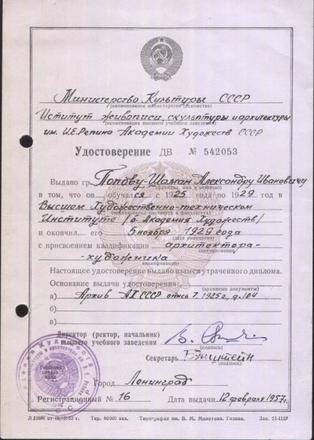 Министерство Культуры СССР
(наименование министерства (ведомства)
Иститут живописи, скульптуры и архитектуры
(наименование высшего учебного заведения)
им. И.Е.Репина Академии Художеств СССР
Удостоверение ДВ № 542053
Выдано гр. Попову-Шаман Александру Ивановичу
в том, что он обучался с 1925 года по 1929 год в
Высшем Художественно-техническом
Институте (б. Академия Художеств)
и окончил 5 ноября 1929 года
с присвоением квалификации архитектора-
художника
Настоящее удостоверение выдано взамен утраченного диплома.
Основание выдачи удостоверения:
(архивные документы)
а) Архив АХ СССР опись 7, 1925г. д. 104
б)
в)
Директор (ректор, начальник)
высшего учебного заведения
(подпись)
Секретарь
(подпись)
Город Ленинград
Регистрационный № 16 Дата выдачи 12 февраля 1957г.